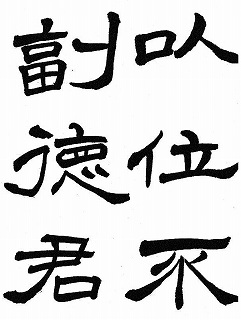 以位不
副徳君